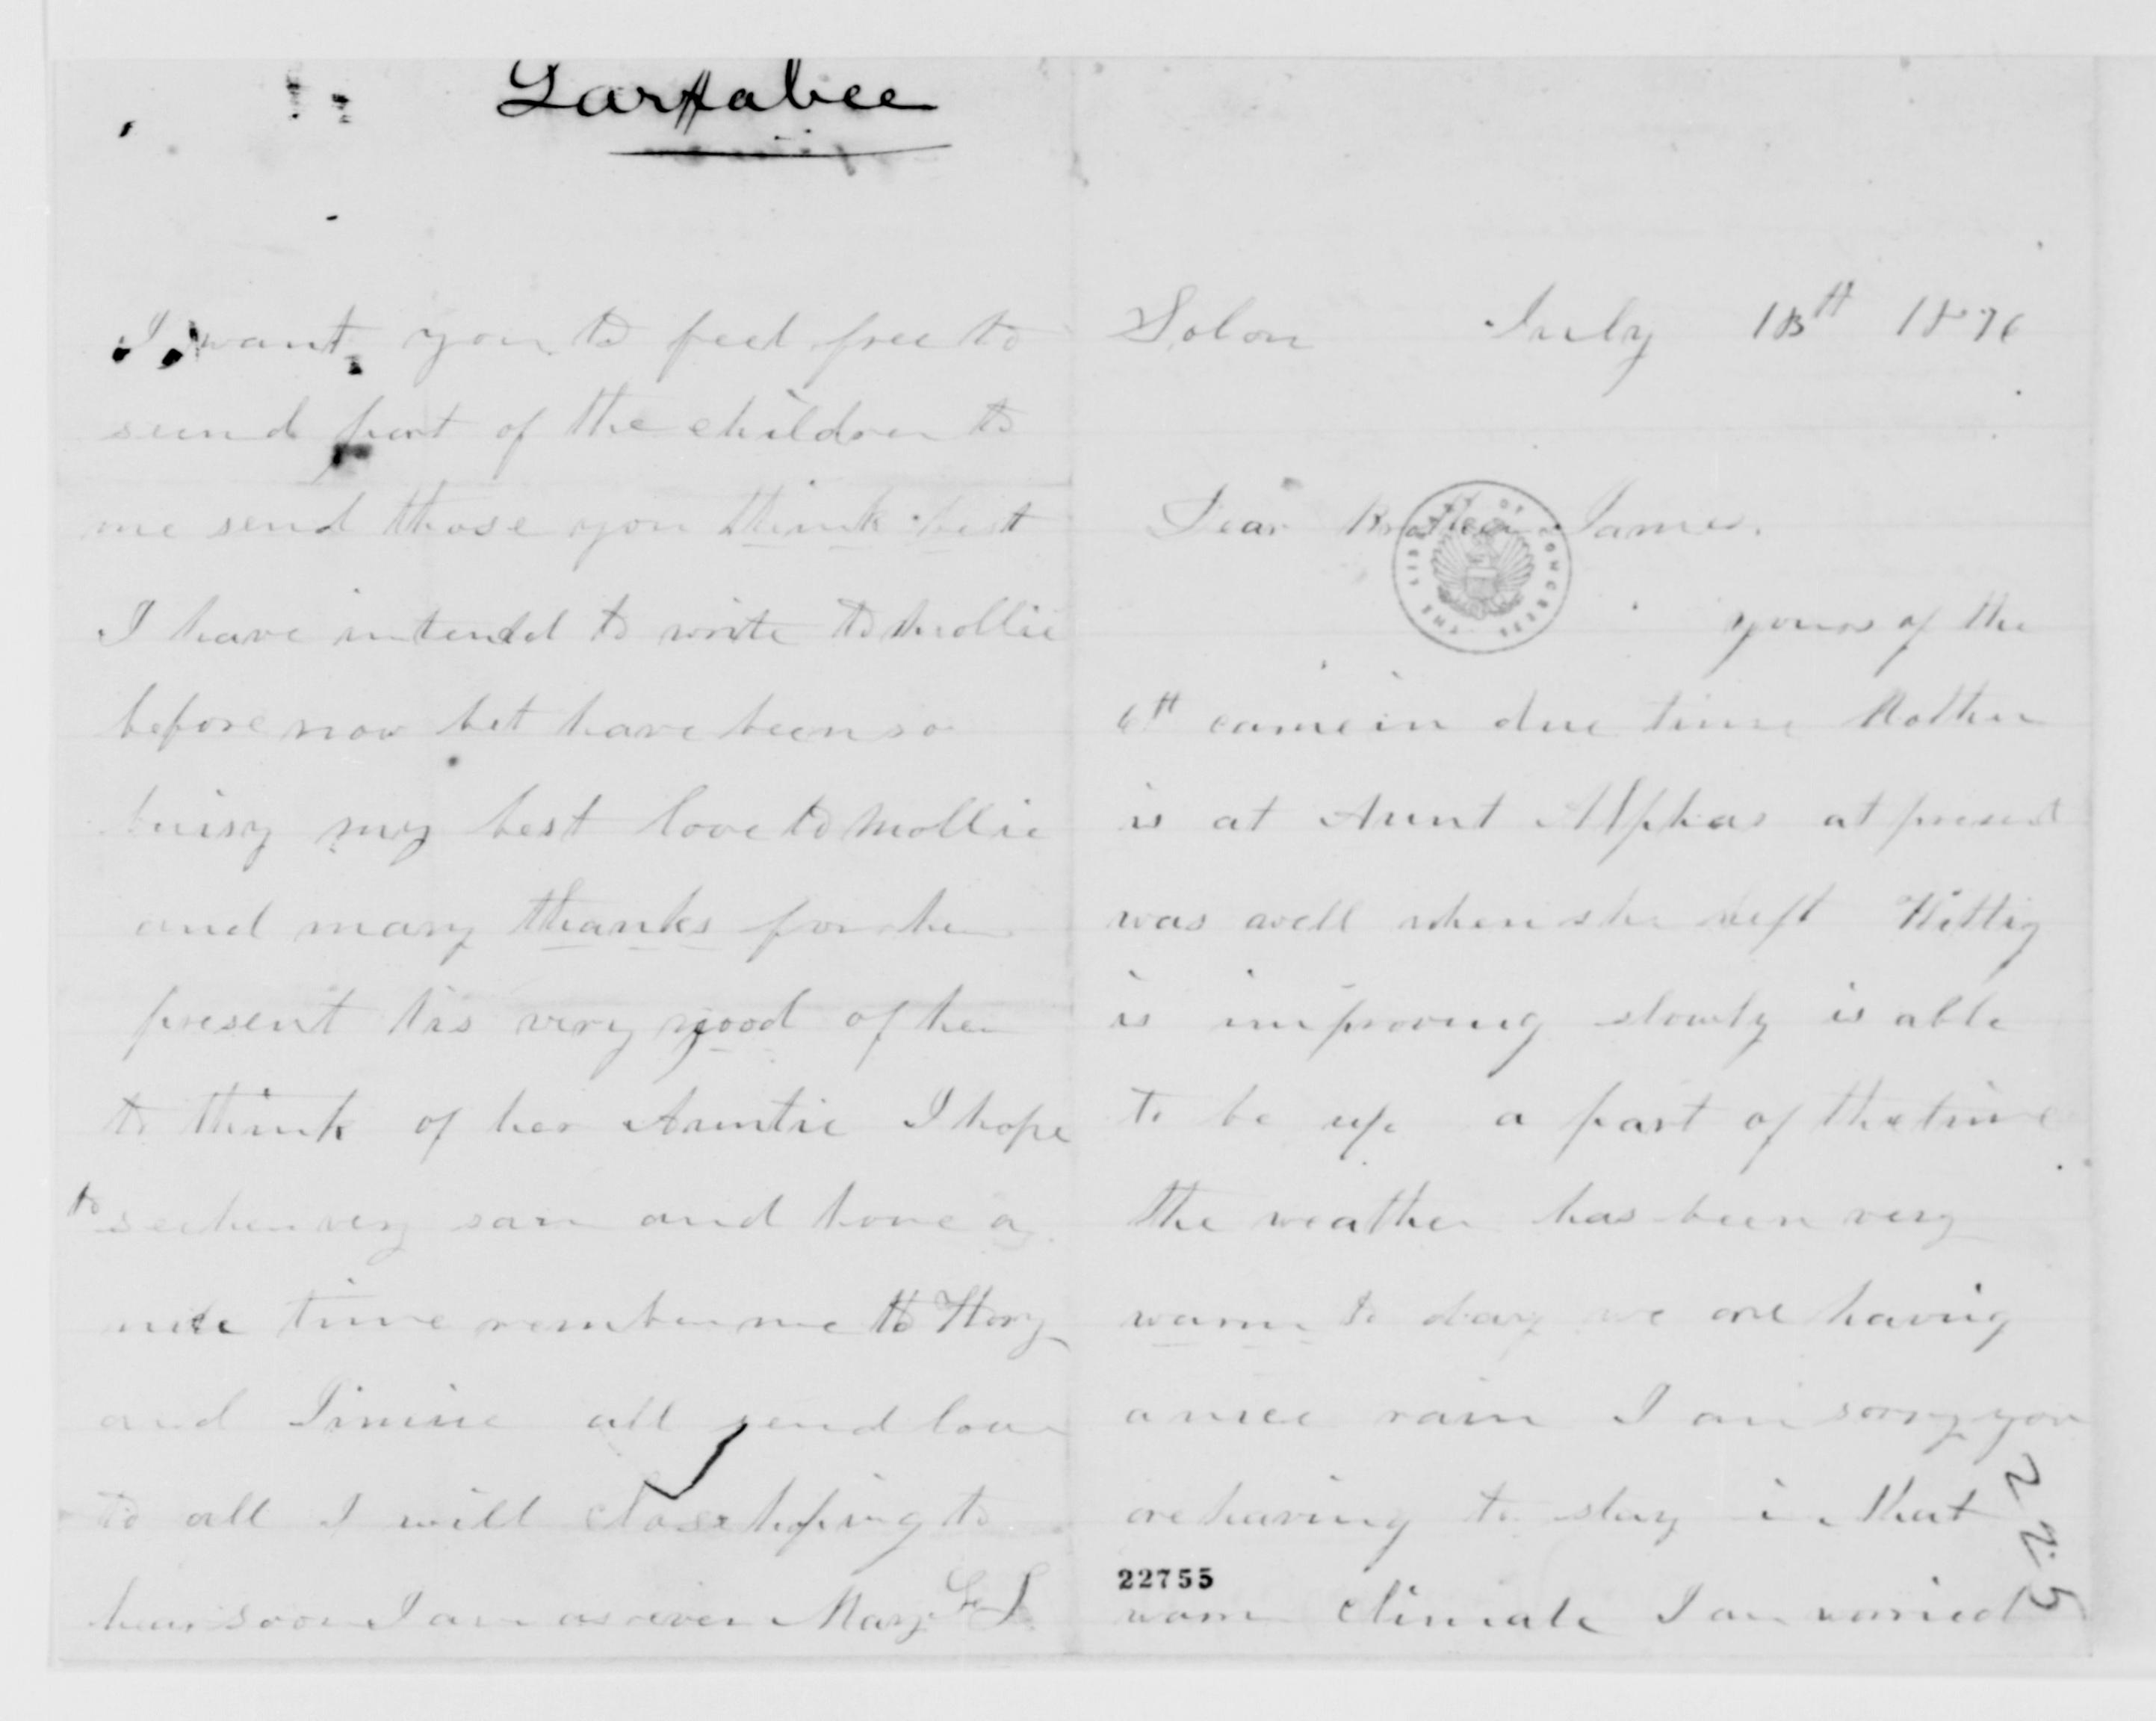 Larrabee
Solon July 13th 1876
Dear Brother James.
yours of the
6th came in due time Mother
is at Aunt Alphas at present
was well when she left Hittty
is improving slowly is able
to be up a part of the time
the weather has been very
warm to day we are having
a nice rain I am sorry you
are having to stay in that
warm climate I am worried
22755
225
I want you to feel free to
send part of the children to
me send those you think best
I have intended to write to Mollie
before now but have been so
buisy my best love to Mollie
and many thanks for her
present tis very good of her
to think of her Auntie I hope
to see her very soon and have a
nice time remember me to Hary
and Jimmie all send love
to all I will close hoping to
hear soon I am as ever Mary G L
THE LIBRARY OF CONGRESS